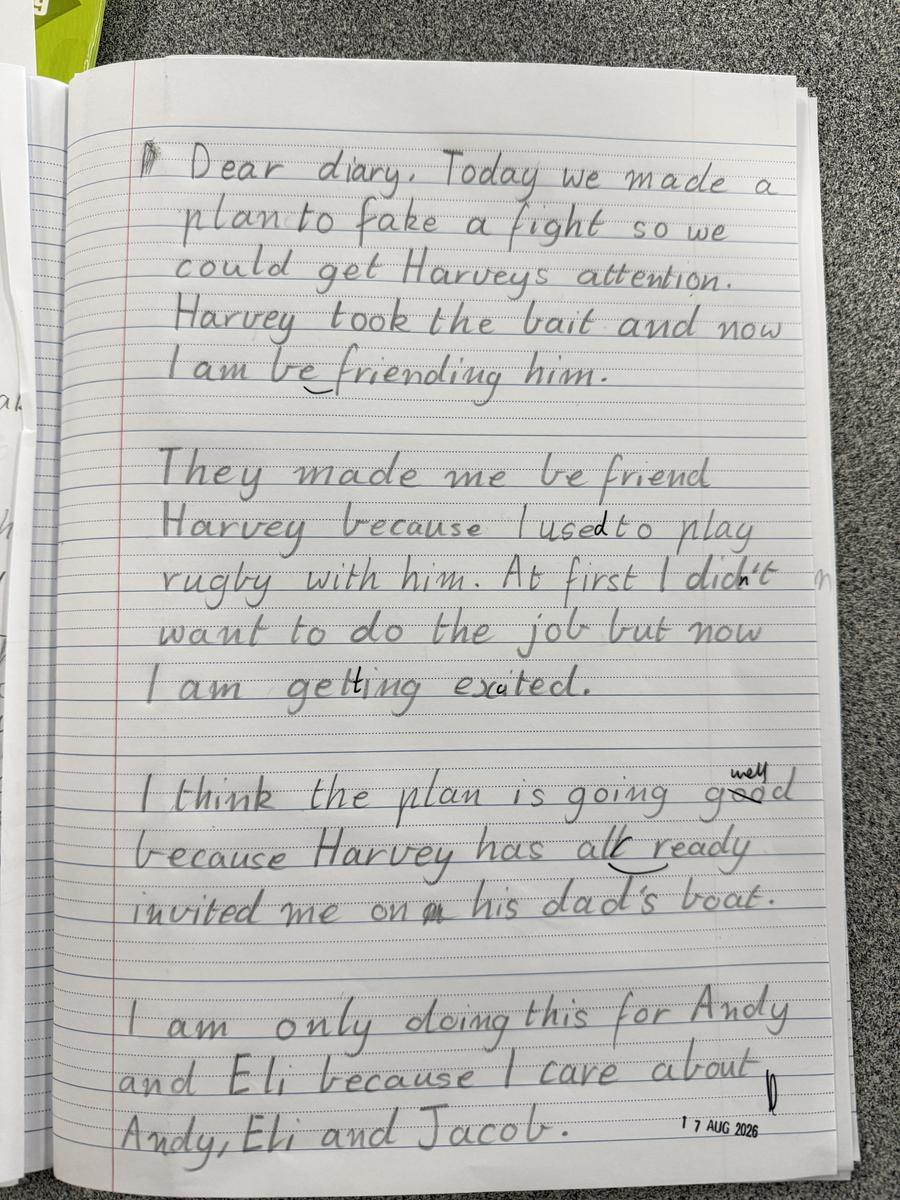 Dear diary. Today we made a
plan to fake a fight so we
could get Harveys attention.
Harvey took the bait and now
I am be friending him.
They made me be friend
Harvey because I used to play
rugby with him. At first I didn't
want to do the job but now
I am getting excited.
well
I think the plan is going good
because Harvey has all ready
invited me on his dad's boat.
I am only doing this for Andy
and Eli because I care about
Andy, Eli and Jacob.
17 AUG 2026